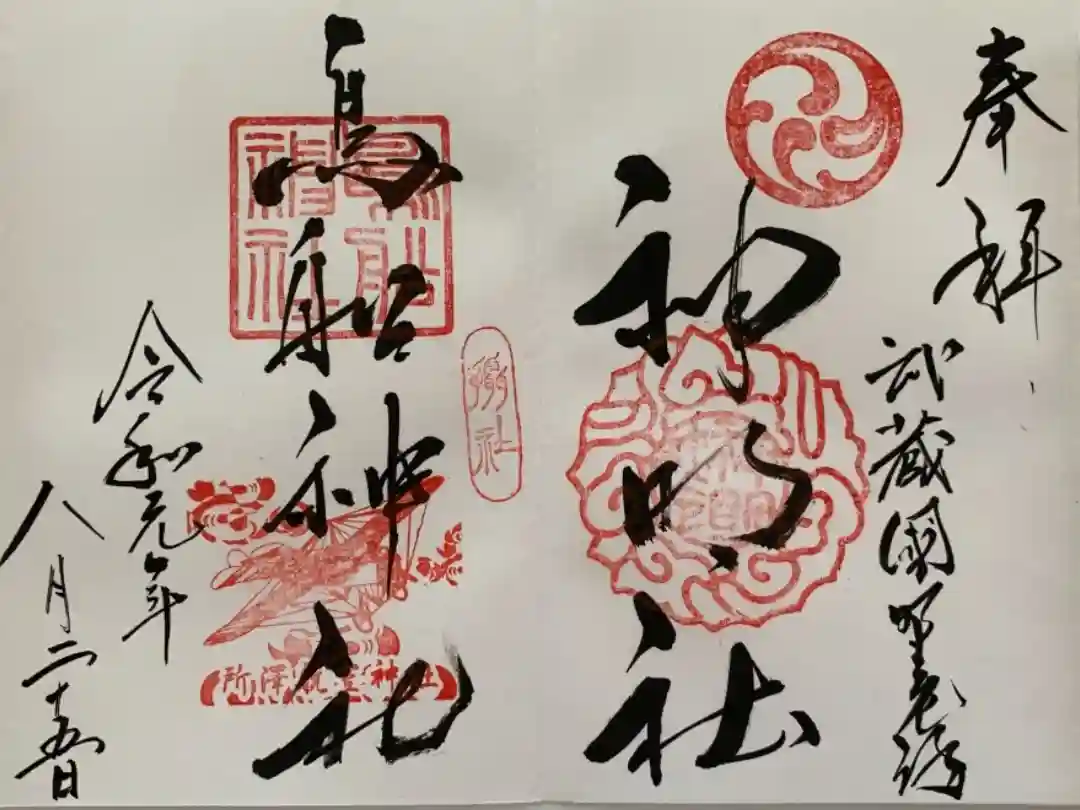 奉拝
武蔵國野老澤
神明社
攝社
鳥船神社
鳥船神社
所澤航空神社
令和元年
八月二十五日